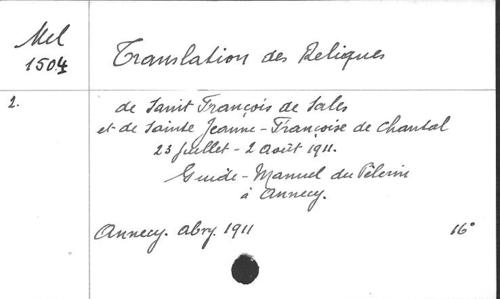 Mel
1504
Translation des Reliques
2.
de Saint François de Sales
et de Sainte Jeanne-Françoise de Chantal
23 Juillet - 2 Août 1911.
Guide-Manuel du Pèlerin
à Annecy.
Annecy. Abry. 1911
16°